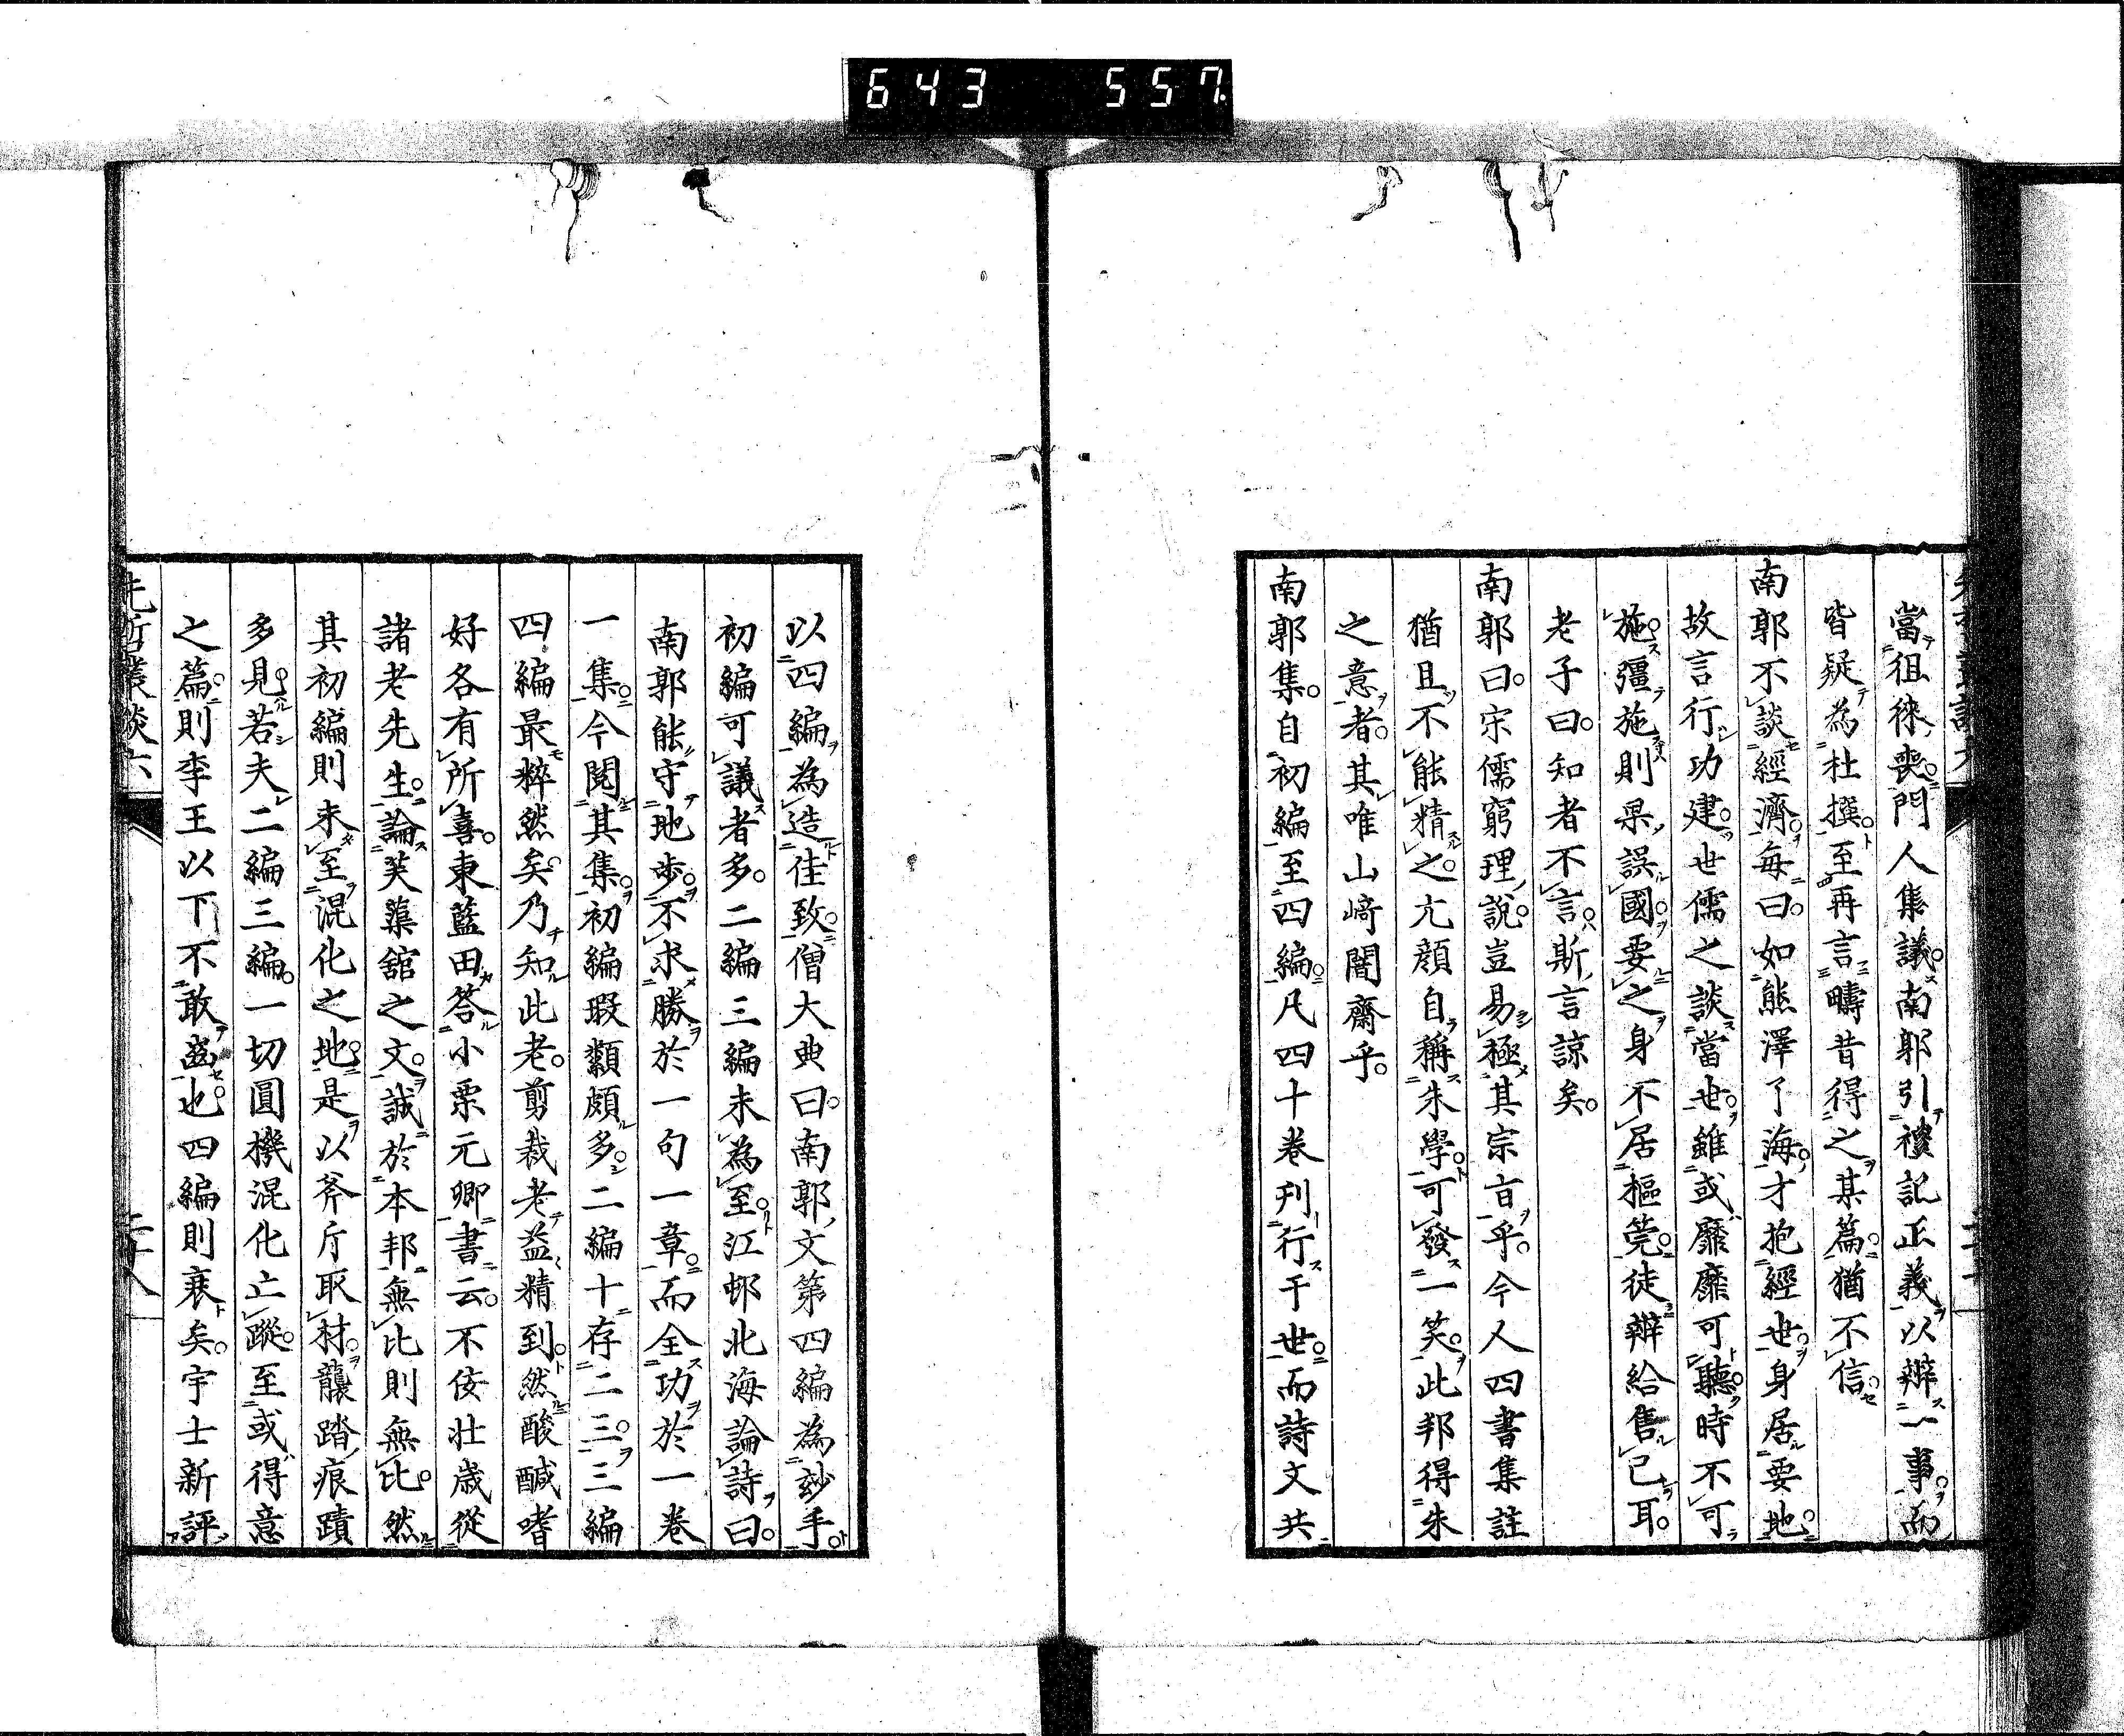 643 557
當徂徠喪門人集議南郭引禮記正義以辨一事而
皆疑為杜撰至再言疇昔得之某篇猶不信
南郭不談經濟每曰如熊澤了海才抱經世身居要地
故言行功建世儒之談當世雖或靡靡可聽時不可
施彊施則果誤國要之身不居摳筦徒辯給售已耳
老子曰知者不言斯言諒矣
南郭曰宋儒窮理說豈易極其宗㫖乎今人四書集註
猶且不能精之亢顔自稱朱學可發一笑此邦得朱
之意者其唯山﨑闇齋乎
南郭集自初編至四編凡四十卷刋行于世而詩文共
以四編為造佳致僧大典曰南郭文第四編為玅手
初編可議者多二編三編未為至江邨北海論詩曰
南郭能守地步不求勝於一句一章而全功於一卷
一集今閱其集初編瑕纇頗多二編十存二三三編
四編最粹然矣乃知此老剪裁老益精到然酸醎嗜
好各有所喜東藍田答小栗元卿書云不佞壯歲從
諸老先生論芙蕖舘之文誠於本邦無比則無比然
其初編則未至混化之地是以斧斤取材襲踏痕蹟
多見若夫二編三編一切圓機混化亡蹤至或得意
之篇則李王以下不敢齒也四編則衰矣宇士新評
先哲叢談六
二十八